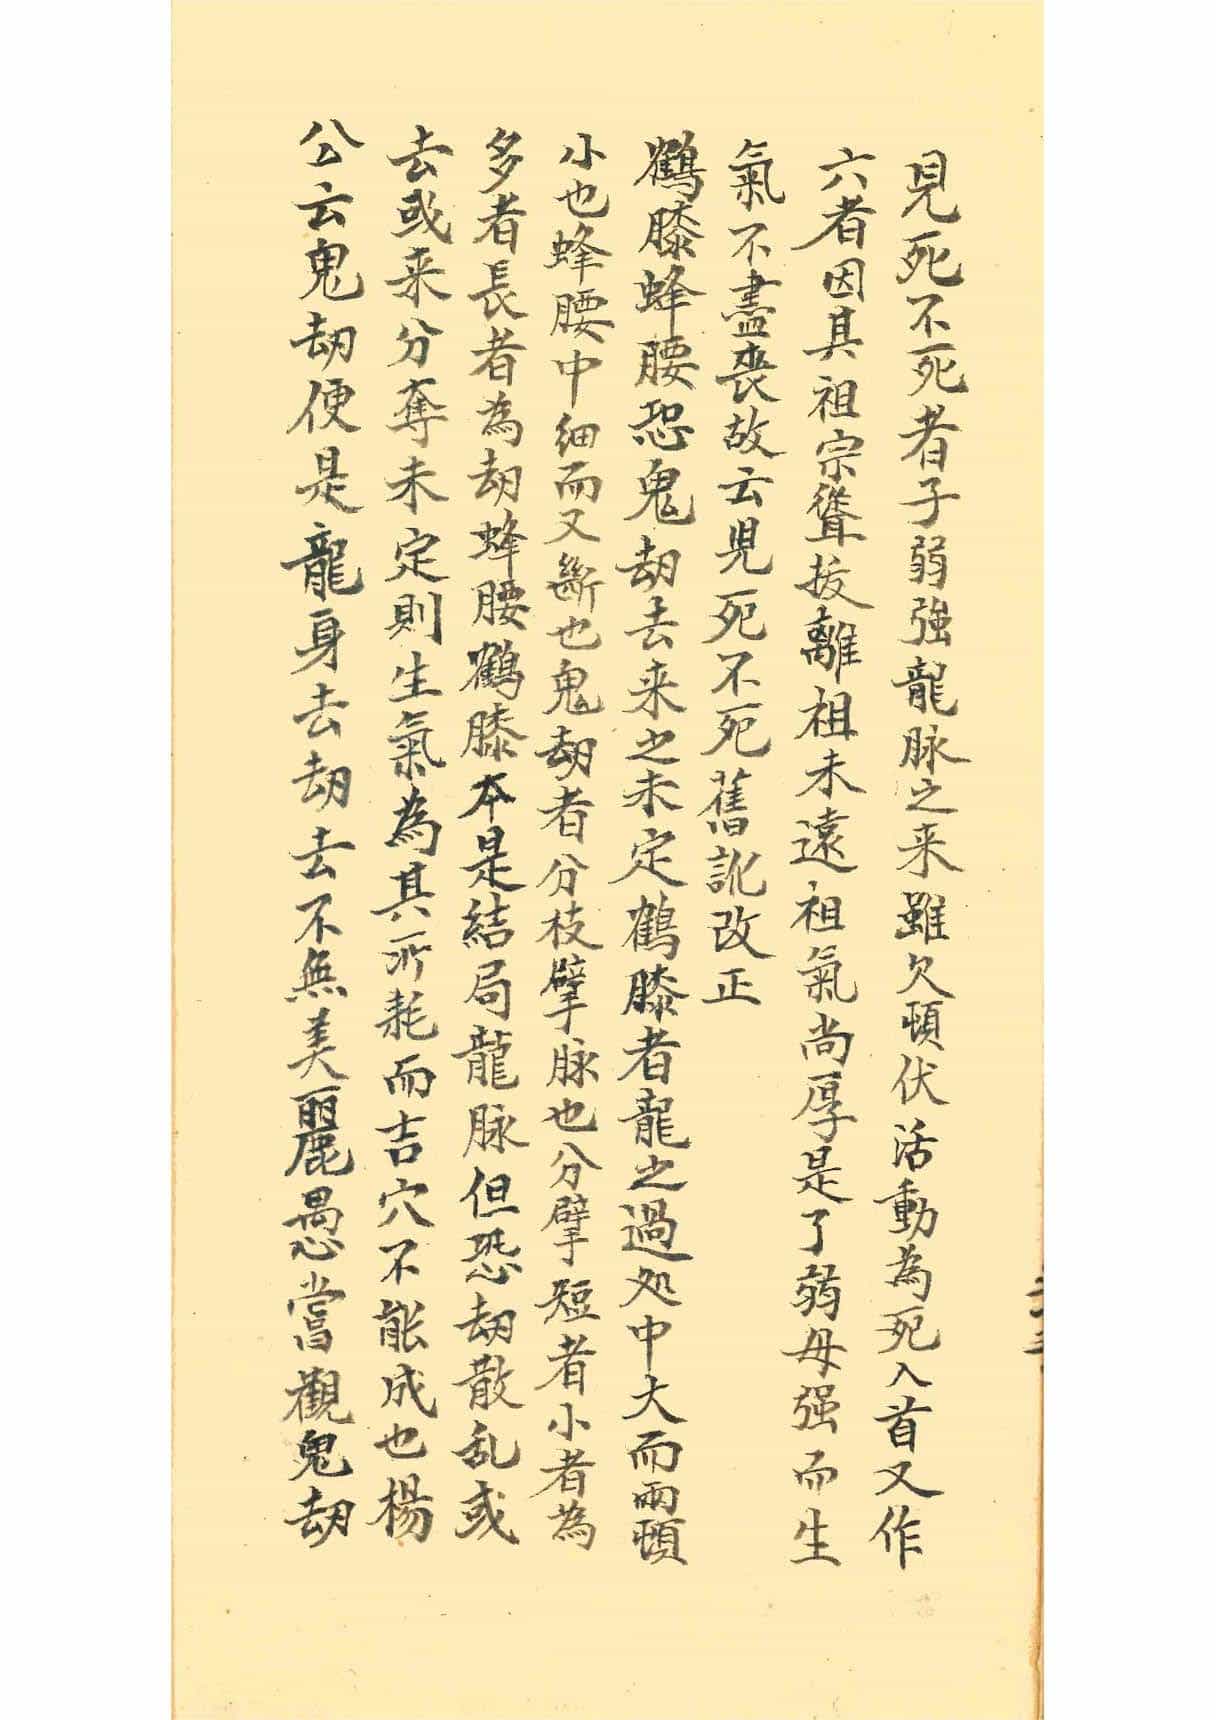 見死不死者子弱強龍脉之来雖欠頓伏活動為死入首又作
六者因其祖宗聳拔離祖未遠祖氣尚厚是了弱母强而生
氣不盡喪故云見死不死舊訛改正
鶴膝蜂腰恐鬼劫去来之未定鶴膝者龍之過処中大而兩頓
小也蜂腰中細而又斷也鬼劫者分枝擘脉也分擘短者小者為
多者長者為劫蜂腰鶴膝本是結局龍脉但恐劫散乱或
去或来分奪未定則生氣為其所耗而吉穴不能成也楊
公云鬼劫便是龍身去劫去不無美麗愚當觀鬼劫